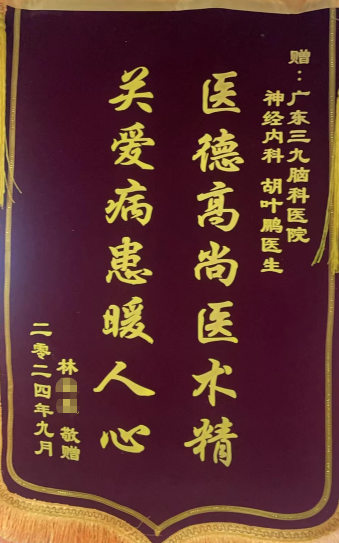 赠：广东三九脑科医院
神经内科 胡叶鹏医生
医德高尚医术精
关爱病患暖人心
林 敬赠
二零二四年九月